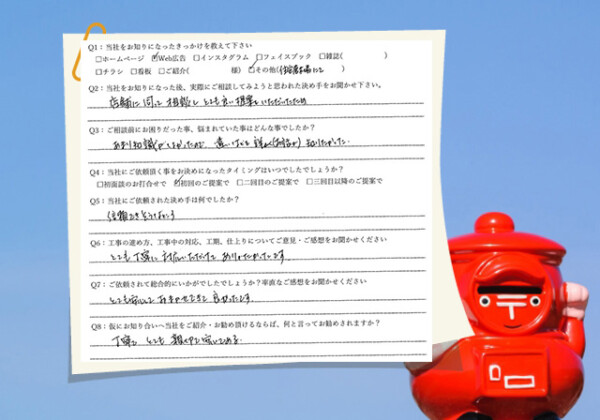 Q1：当社をお知りになったきっかけを教えて下さい
□ホームページ ☑Web広告 □インスタグラム □フェイスブック □雑誌( )
□チラシ □看板 □ご紹介( 様) ☑その他(
Q2：当社をお知りになった後、実際にご相談してみようと思われた決め手をお聞かせ下さい。
店舗に伺って相談し とても良い提案をいただいたため
Q3：ご相談前にお困りだった事、悩まれていた事はどんな事でしたか？
あまり知識がなかったため、違いなどを詳しく
Q4：当社にご依頼頂く事をお決めになったタイミングはいつでしたでしょうか？
□初面談のお打合せで ☑初回のご提案で □二回目のご提案で □三回目以降のご提案で
Q5：当社にご依頼された決め手は何でしたか？
信頼できそうなので
Q6：工事の進め方、工事中の対応、工期、仕上りについてご意見・ご感想をお聞かせください
とても丁寧に対応いただけて ありがたかったです
Q7：ご依頼されて総合的にいかがでしたでしょうか？率直なご感想をお聞かせください
とても安心しておまかせできて 良かったです。
Q8：仮にお知り合いへ当社をご紹介・お勧め頂けるならば、何と言ってお勧めされますか？
丁寧で とても
〒